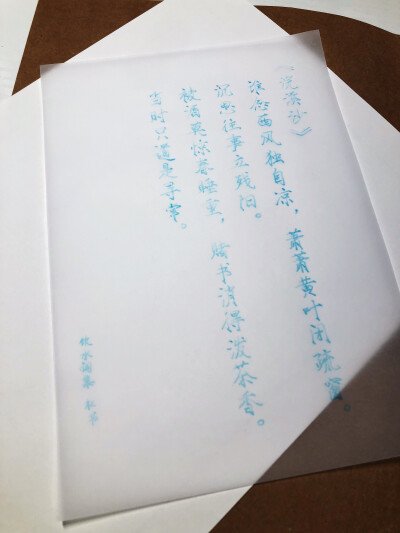 《浣溪沙》
谁念西风独自凉，萧萧黄叶闭疏窗。
沉思往事立残阳。
被酒莫惊春睡重，赌书消得泼茶香。
当时只道是寻常。
饮水词集